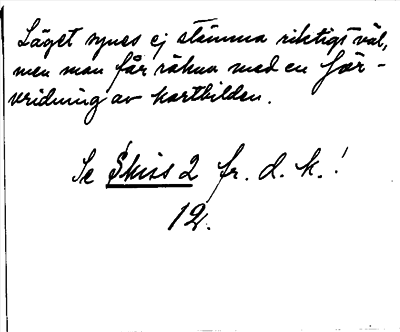 Läget synes ej stämma riktigt väl,
men man får räkna med en för-
vridning av kartbilden.
Se Skiss 2 fr. d. k.!
12.